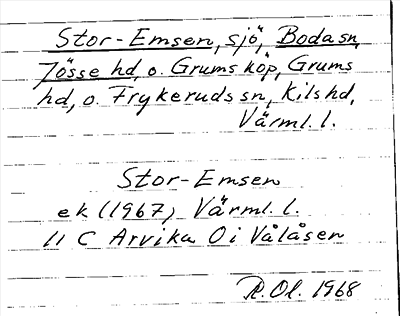 Stor-Emsen, sjö, Boda sn,
Jösse hd, o. Grums köp, Grums
hd, o. Frykeruds sn, Kils hd,
Värml. l.
Stor-Emsen
ek (1967) Värml. l.
11 C Arvika Oi Vålåsen
R.Ol. 1968